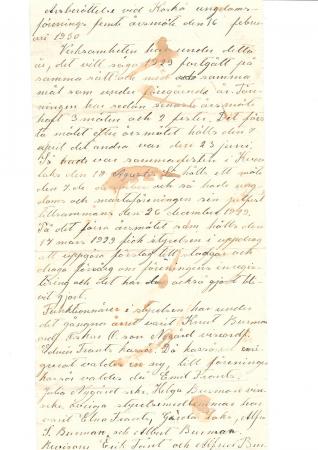 Årsberättelse vid Korsö ungdoms-
förenings femte årsmöte den 16 febru-
ari 1930
Verksamheten har under detta
år, det vill säga 1929 fortgått på
samma sätt och med samma
mål som under föregående år. Före-
ningen har sedan senaste årsmöte
haft 3 möten och 2 fester. Det för-
sta mötet efter årsmötet hölls den 7
april det andra var den 23 juni.
Så hade var sommarfesten i
den 18 Augusti. Så hölls ett möte
den 7. de och så hade ung-
doms och martaföreningen sin julfest
tillsammans den 26 december 1929.
På det förra årsmötet som hölls den
17 mars 1929 fick styrelsen i uppdrag
att uppgöra förslag till stadgar och
draga försorg om föreningens inregist-
rering och det har då också gjort ble-
vit gjort.
Funktionärer i styrelsen har under
det gångna året varit Knut Burman
ordf. Oskar O. son Nygård viceordf.
Edvin Frants kassör. Då kassören
valdes en ny, till förenings
kassör valdes då Emil Frants,
Julia Nygård sekr. Helga Burman vice
sekr. övriga styrelsemedlemmar har
varit Elna Frants, Gerda Laks, Alfr.
S. Burman, och Albert Burman.
Revisorer Erik Fant och Alfred Bur-